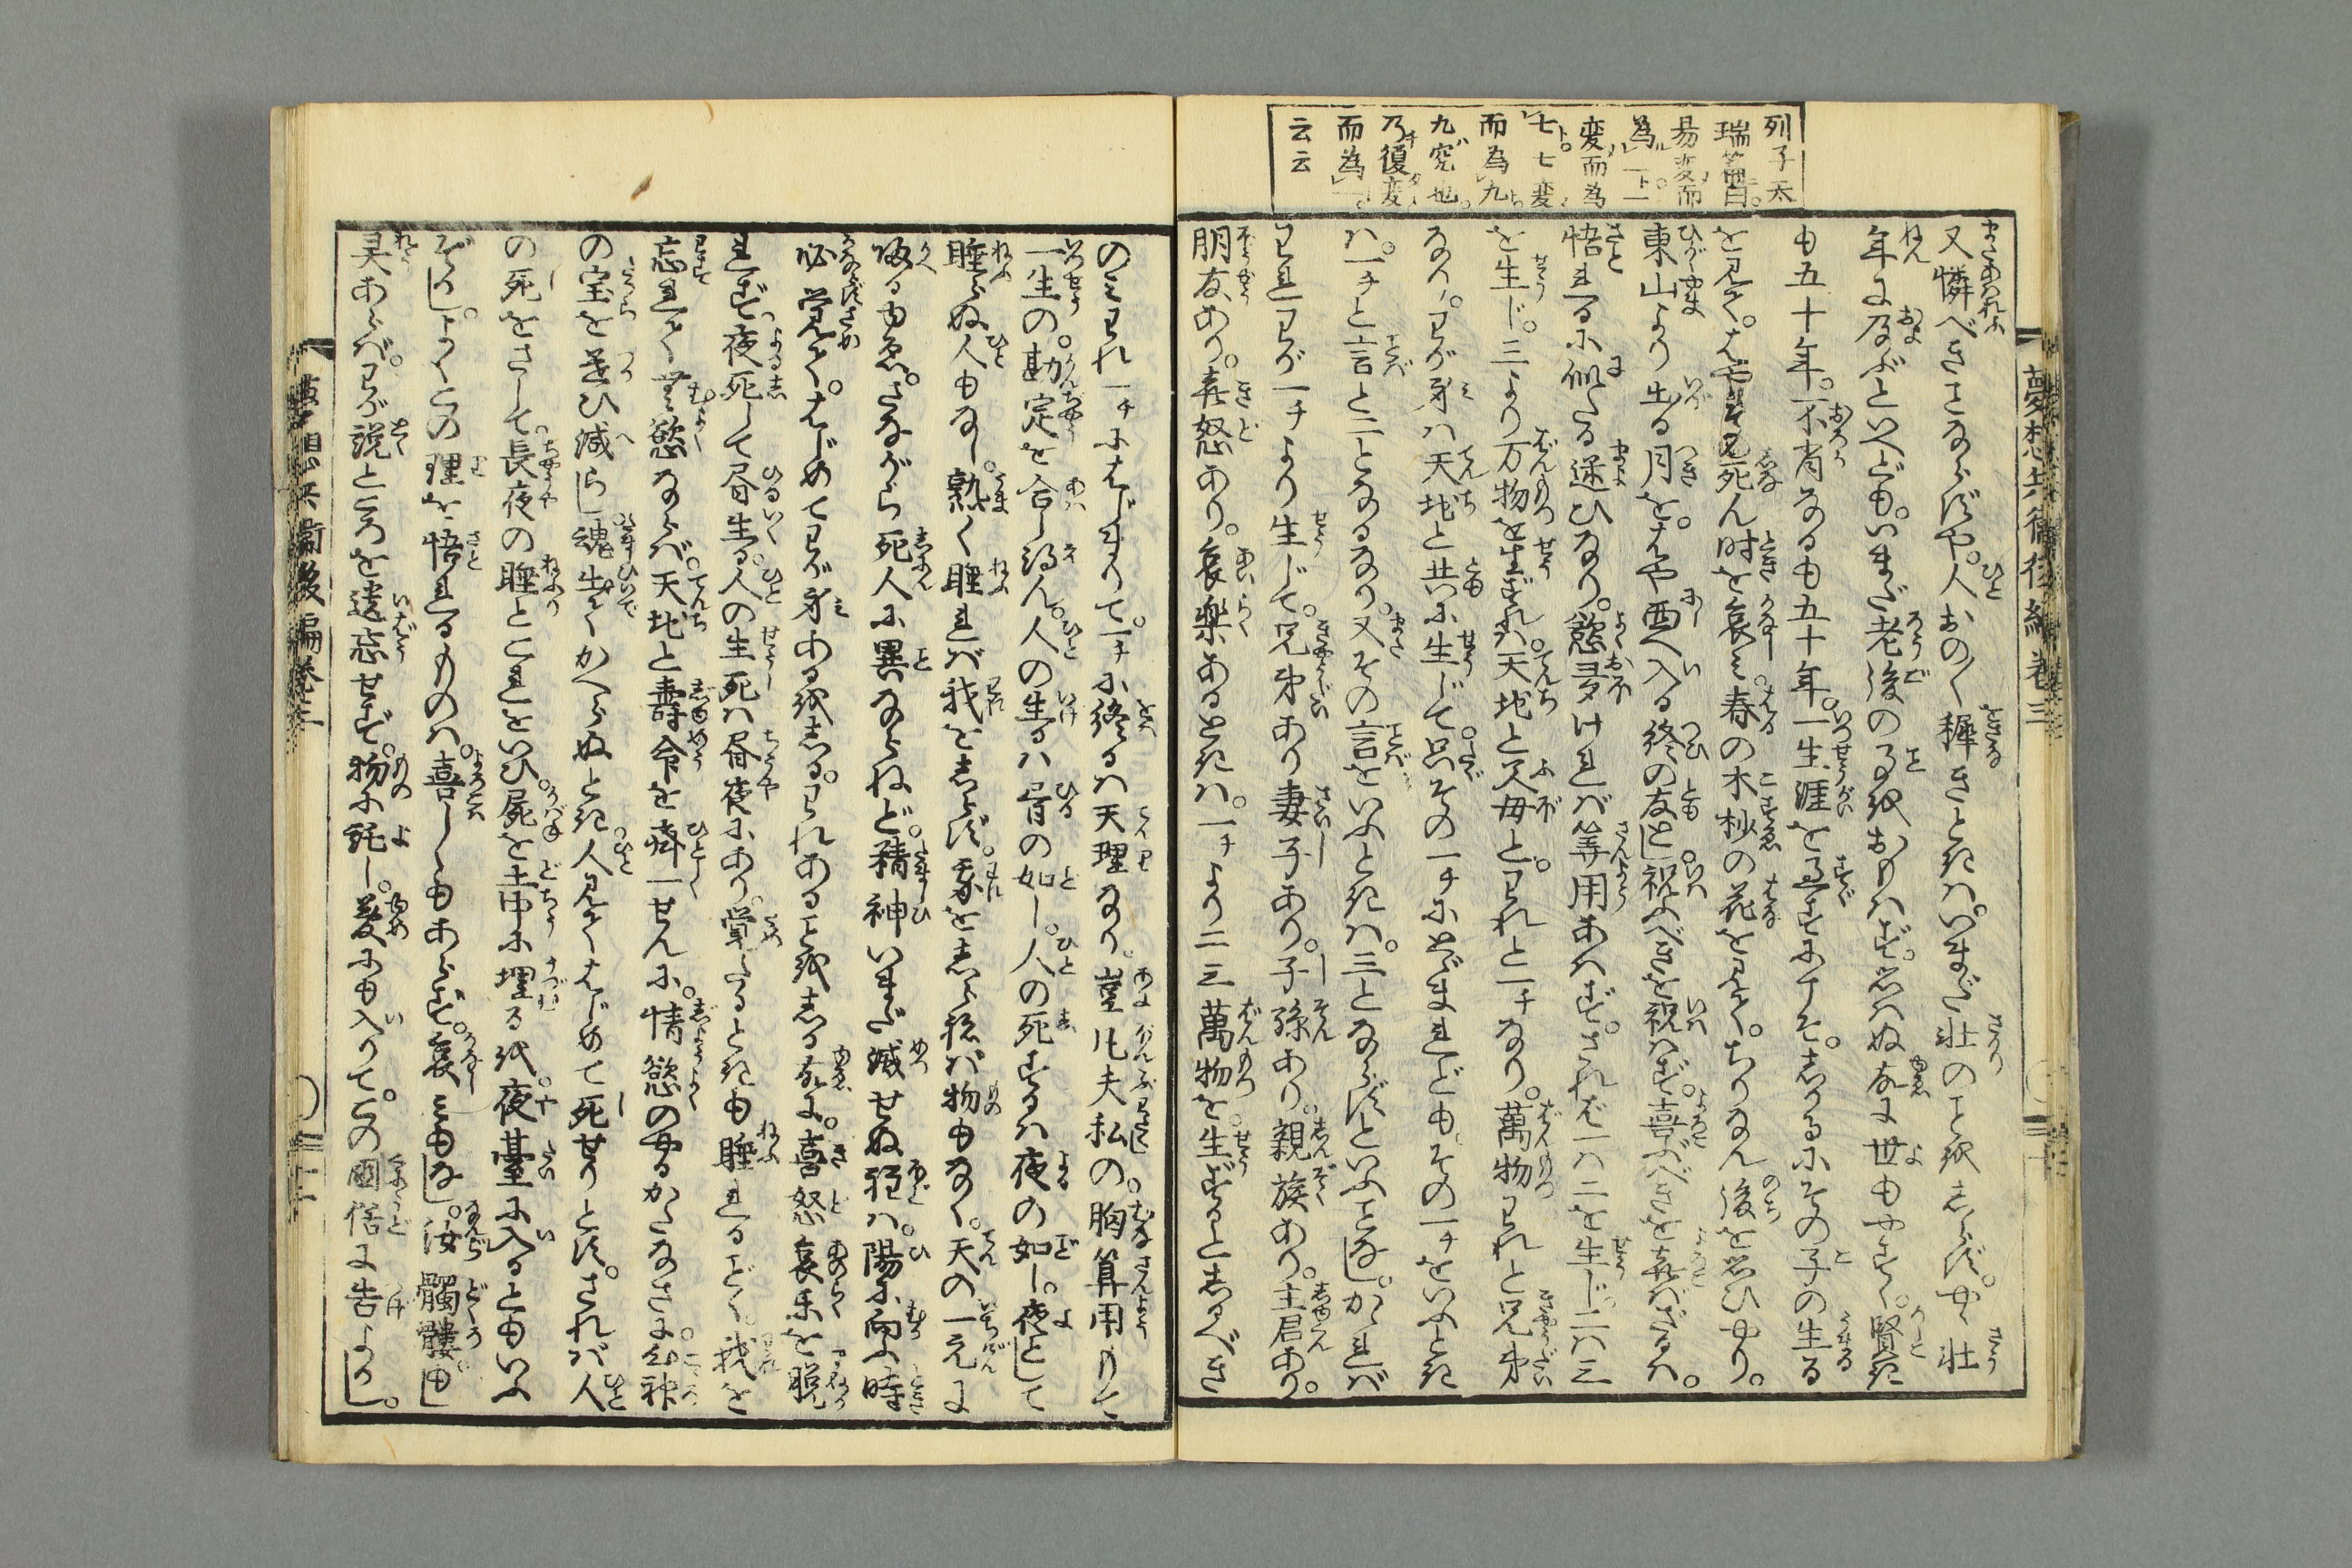 夢想兵衛後編巻三
列子天
瑞篇曰
易変而
為一
変而為
七七変
而為九
九究也
乃復変
而為一
云云
又憐べきことならずや。人おの〳〵穉きときハ。いまだ壮のことをしらず。や丶壮
年に及ぶといへども。いまだ老後のことをおもはず。思はぬ故に世もやすく。賢き
も五十年。不肖なるも五十年。一生涯を過すにすぎず。しかるにその子の生る
を見て。はや死ん時を哀み。春の木杪の花を見て。ちりなん後を思ひやり。
東山より出る月を。はや西へ入る終の友とし。祝ふべきを祝はず。喜ぶべきを喜ばざるハ。
悟れるに似たる迷ひなり。慾多けれバ算用あはず。されば一ハ二を生じ。二ハ三
を生じ。三より万物を生ずれバ。天地と父母と。われと一チなり。萬物われと兄弟
なり。わが身ハ天地と共に生じて。只その一チにとゞまれども。その一チをいふとき
ハ。一チと言と二となるなり。又その言をいふときハ。三とならずといふことなし。かゝれバ
われわが一チより生じて。兄弟あり妻子あり。子孫あり。親族あり。主君あり。
朋友あり。喜怒あり。哀楽あるときハ。一チより二三萬物を。生ずるとしるべき
のミ。われ一チにはじまりて。一チに終るハ天理なり。豈凡夫私の胸算用もて
一生の。勘定を合し得ん。人の生るハ昼の如し。人の死するハ夜の如し。夜として
睡らぬ人もなし。熟く睡れバ我をしらず。我をしらねバ物もなく。天の一元に
帰るもゑ。さながら死人に異ならねど。精神いまだ滅せぬ程ハ。陽に向ふ時
必覚て。はじめてわが身あるをしる。われあることをしる故に。喜怒哀楽を脱
れず。夜死して昼生る。人の生死ハ昼夜にあり。覚たるときも睡れるごとく。我を
忘れて無慾ならバ。天地と壽命を齊一せんに。情慾のやるかたなさに。心神
の宝を遣ひ減らし。魂出てかへらぬとき。人見てはじめて死せりとす。されバ人
の死をさして。長夜の睡とこれをいひ。屍を土中に埋るを。夜臺に入るともいふ
ぞかし。よくこの理を悟れるものハ。喜しくもあらず。哀しミもなし。汝髑髏もし
灵あらバ。わが説ところを遺忘せず。物に託し。夢にも入りて。この國俗に告よかし。
夢想兵衛後編巻三